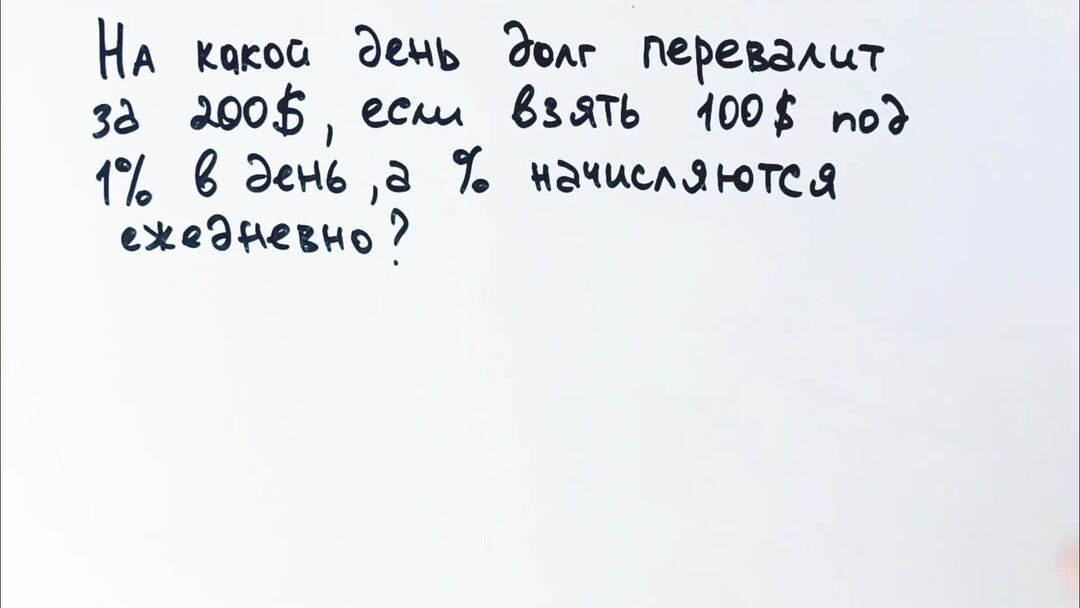 На какой день долг перевалит
за 200$, если взять 100$ под
1% в день, а % начисляются
ежедневно?